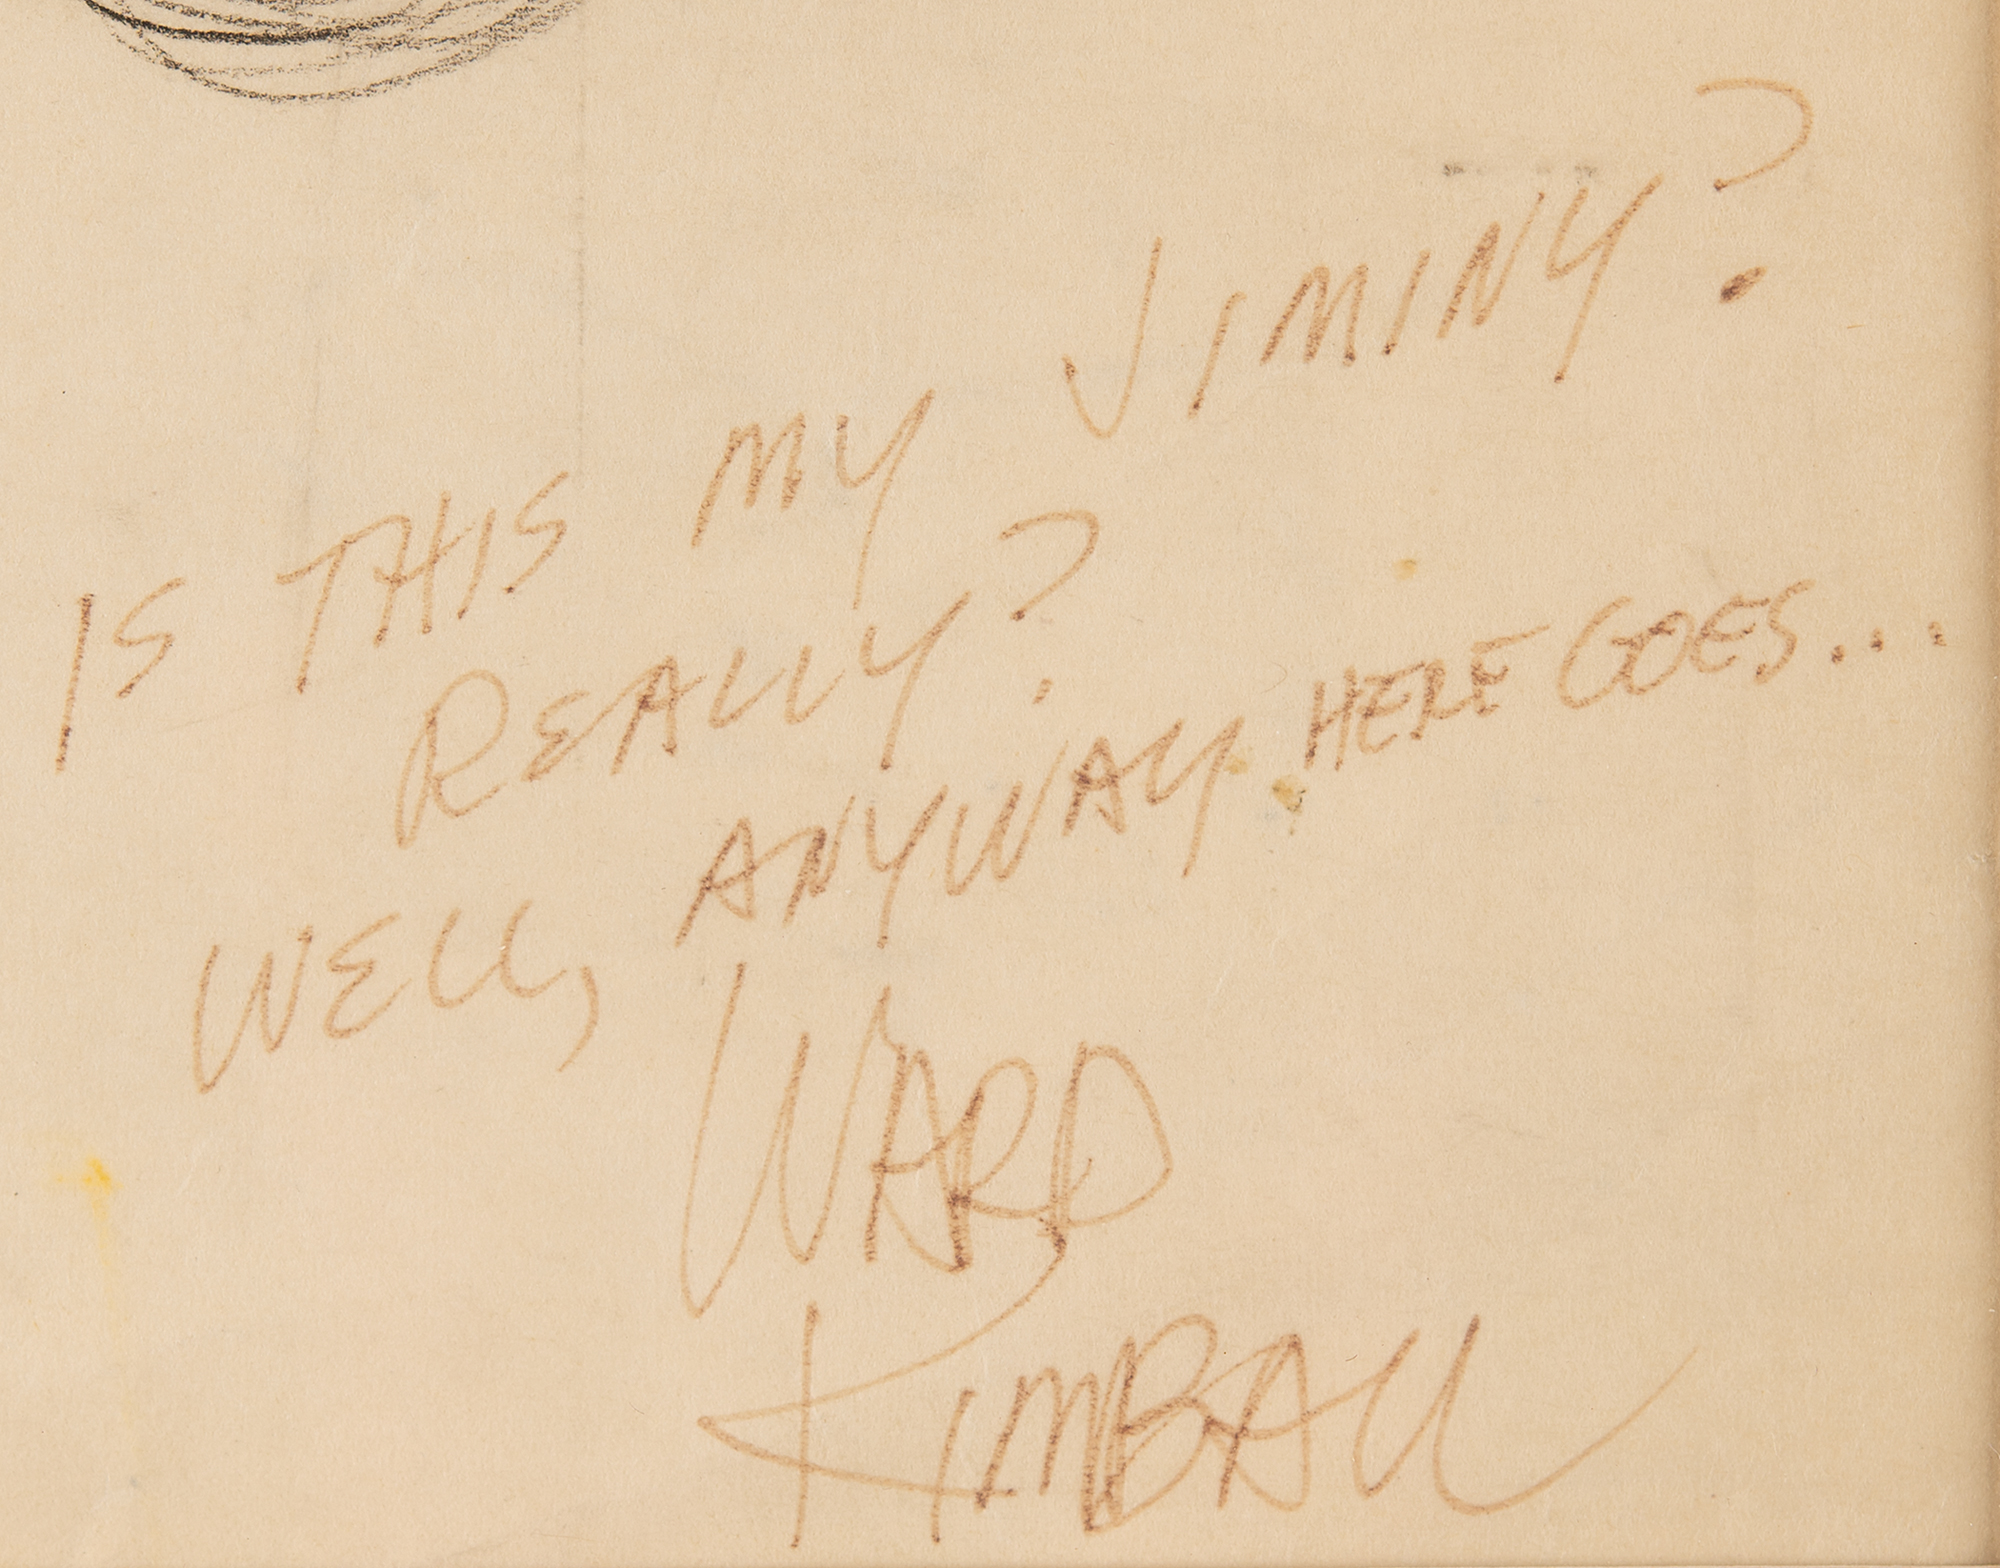 IS THIS MY JIMINY?
REALLY?
WELL, ANYWAY HERE GOES...
WARD
KIMBALL